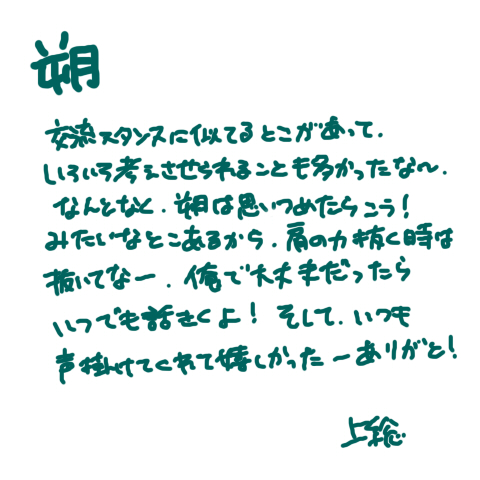 朔
交流スタンスに似てるとこがあって、
いろいろ考えさせられることも多かったな〜。
なんとなく、朔は思いつめたらこう!
みたいなとこあるから、肩の力抜く時は
抜いてなー。俺で大丈夫だったら
いつでも話きくよ! そして、いつも
声掛けてくれて嬉しかったーありがと!
上総